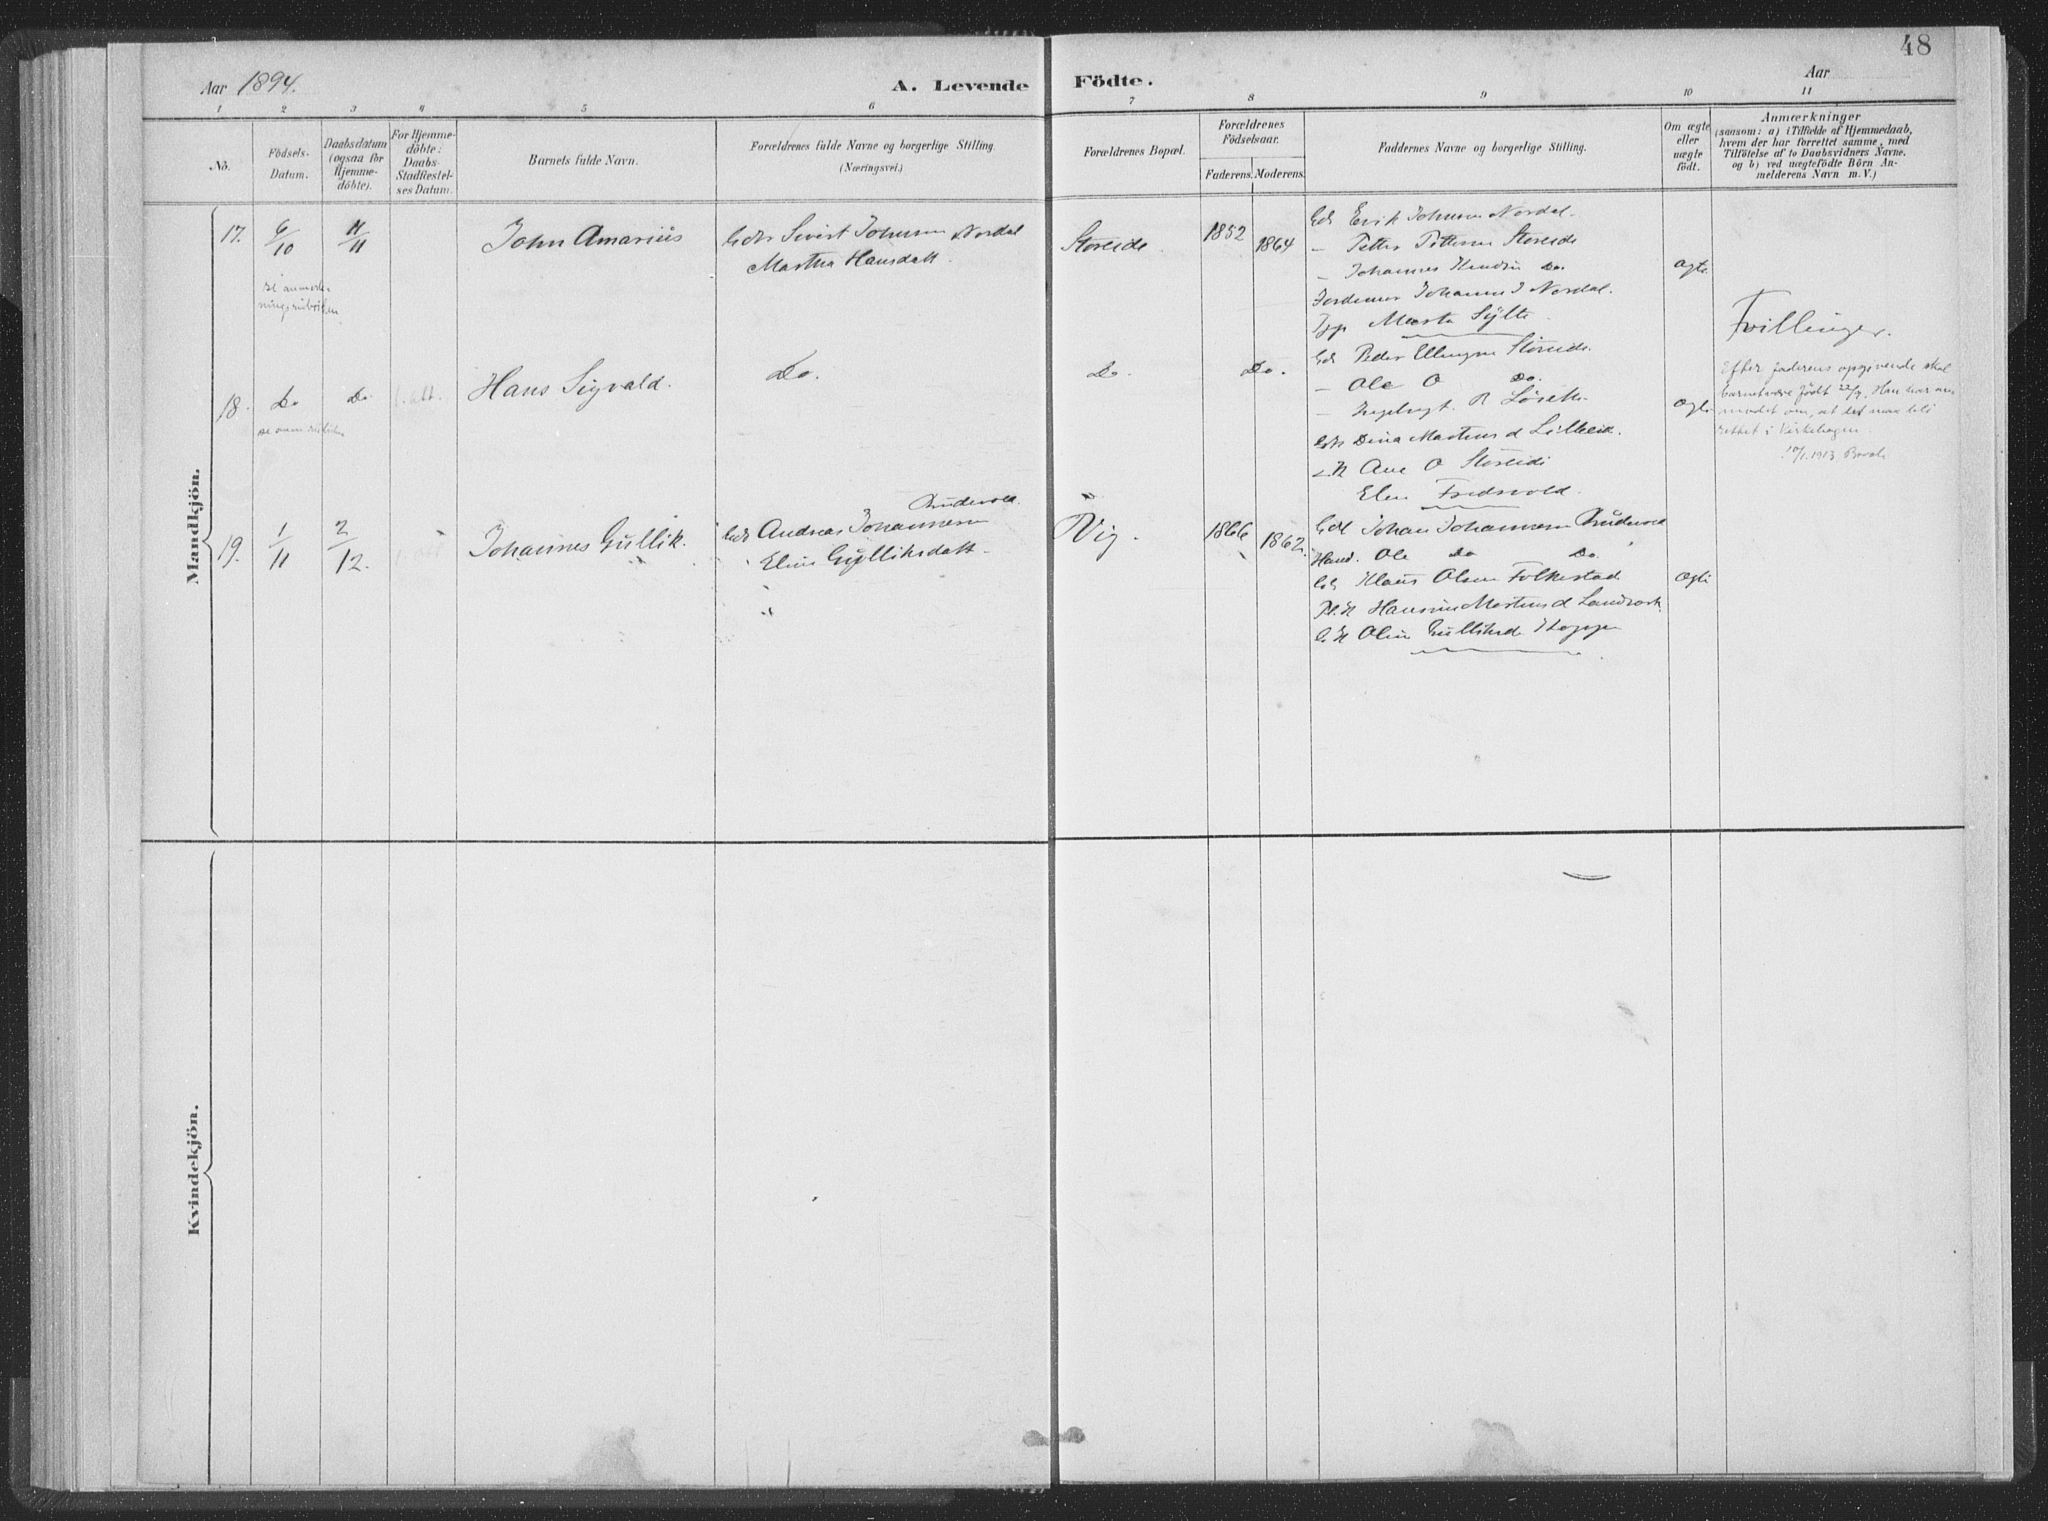 48
Aar 1894.
A. Levende Födte.
Aar
1 2 3 4 5 6 7 8 9 10 11
No.
Födsels-
Datum.
Daabsdatum
(ogsaa for
Hjemme-
döbte).
For Hjemme-
döbte:
Daabs-
Stadfæstel-
ses Datum.
Barnets fulde Navn.
Forældrenes fulde Navne og borgerlige Stilling.
(Næringsvei.)
Forældrenes Bopæl.
Forældrenes
Födselsaar.
Faderens. Moderens.
Faddernes Navne og borgerlige Stilling.
Om ægte
eller
uægte
födt.
Anmærkninger
(saasom: a) i Tilfælde af Hjemmedaab,
hvem der har forrettet samme, med
Tilföielse af to Daabsvidners Navne,
og b) ved uægtefödte Börn An-
melderens Navn m. V.)
Mandkjön.
17.
6/10
11/11
John Amarius
Sivert Johnsen Nordal
Martha Hansdatt.
Storeide.
1852
1864
Erik Johnsen Nordal.
– Petter Pettersen Storeide
– Johannes Do.
Johanne J Nordal.
Marta Sylte.
Ægte
Tvillinger.
18.
Do
Do
Hans Sigvald.
Do.
Do.
Do.
Peder Ellingsen Storeide.
– Ole O Do.
– R Løseth
Dina Martinusd
Ane O Storeide
Elen Fredsvold.
Ægte
Efter faderens opgivende skal
barnet være født 22/9. Han har an
modet om, at det maa bli
rettet i Kirkebogen.
1913
19.
1/11
2/12.
Johannes Gullik.
Andreas Johannesen
Eline Gulliksdatt.
Vig.
1866
1862.
Johan Johannesen
Ole Do Do.
Klaus Olsen Folkestad
Hansine Martinusd
Oline Gulliksd
Ægte
Kvindekjön.